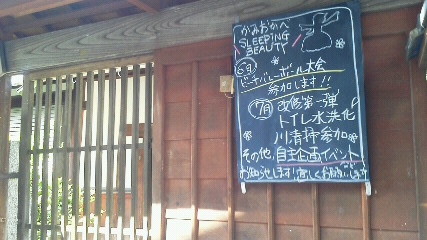 かみおかへ
SLEEPING
BEAUTY
6月
ビーチバレーボール大会
参加します!!
7月 改修第一弾
トイレ水洗化
川清掃参加
その他、自主企画イベント
お知らせします!宜しくお願いします